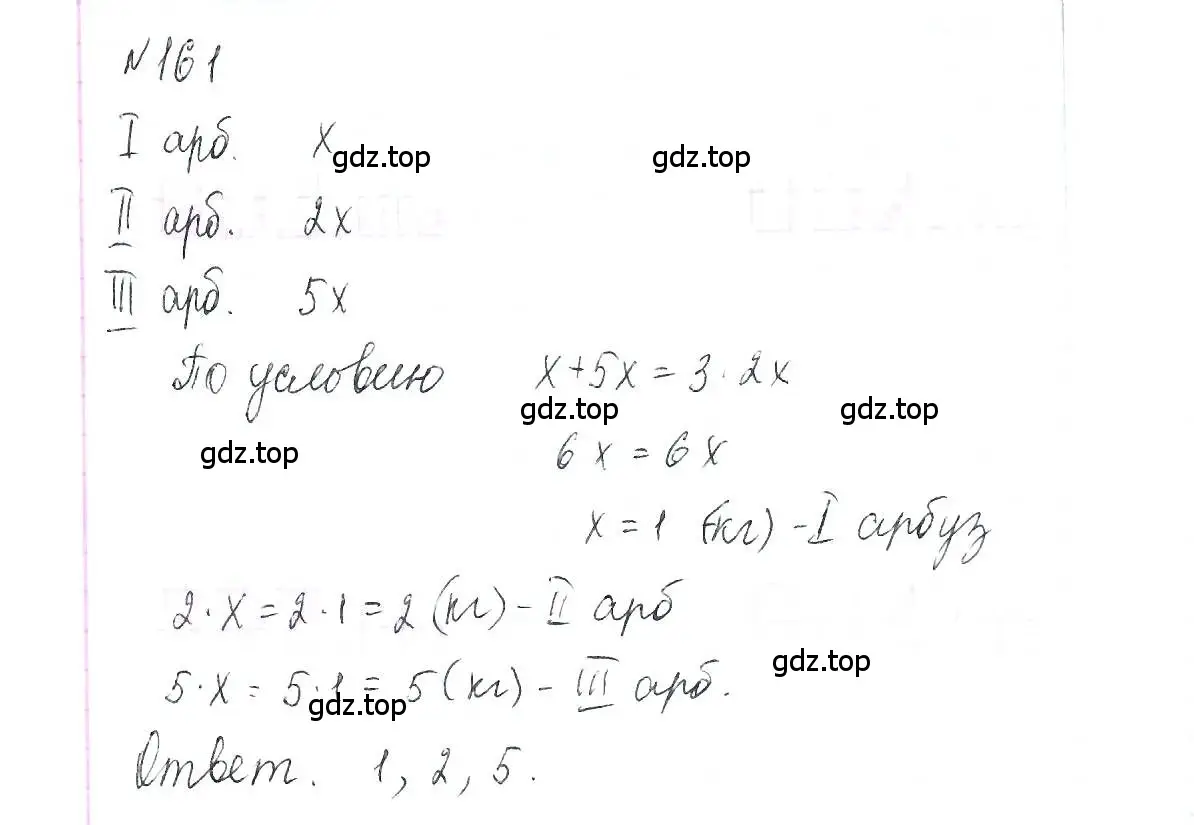 №161
I арб. x
gdz.top gdz.top
II арб. 2x
III арб. 5x
По условию x+5x=3·2x
gdz.top gdz.top
gdz.top 6x=6x
x=1 (кг) - I арбуз
2·x=2·1=2(кг) - II арб
gdz.top
5·x=5·1=5(кг) - III арб.
gdz.top
Ответ. 1, 2, 5.